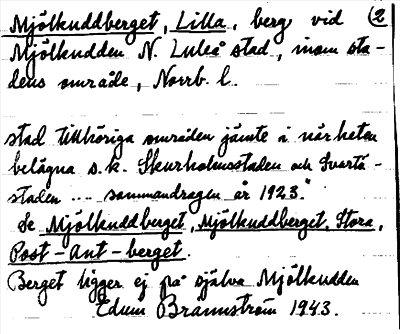 Mjölkuddberget, Lilla, berg vid (2
Mjölkudden N. Luleå stad, inom sta-
dens område, Norrb. l.
stad tillhöriga områden jämte i närheten
belägna s.k. Skurholmsstaden och Svartö-
staden .... sammandragen år 1923."
Se Mjölkuddberget, Mjölkuddberget, Stora,
Post-Ant-berget.
Berget ligger ej på själva Mjölkudden
Edvin Brännström 1943.